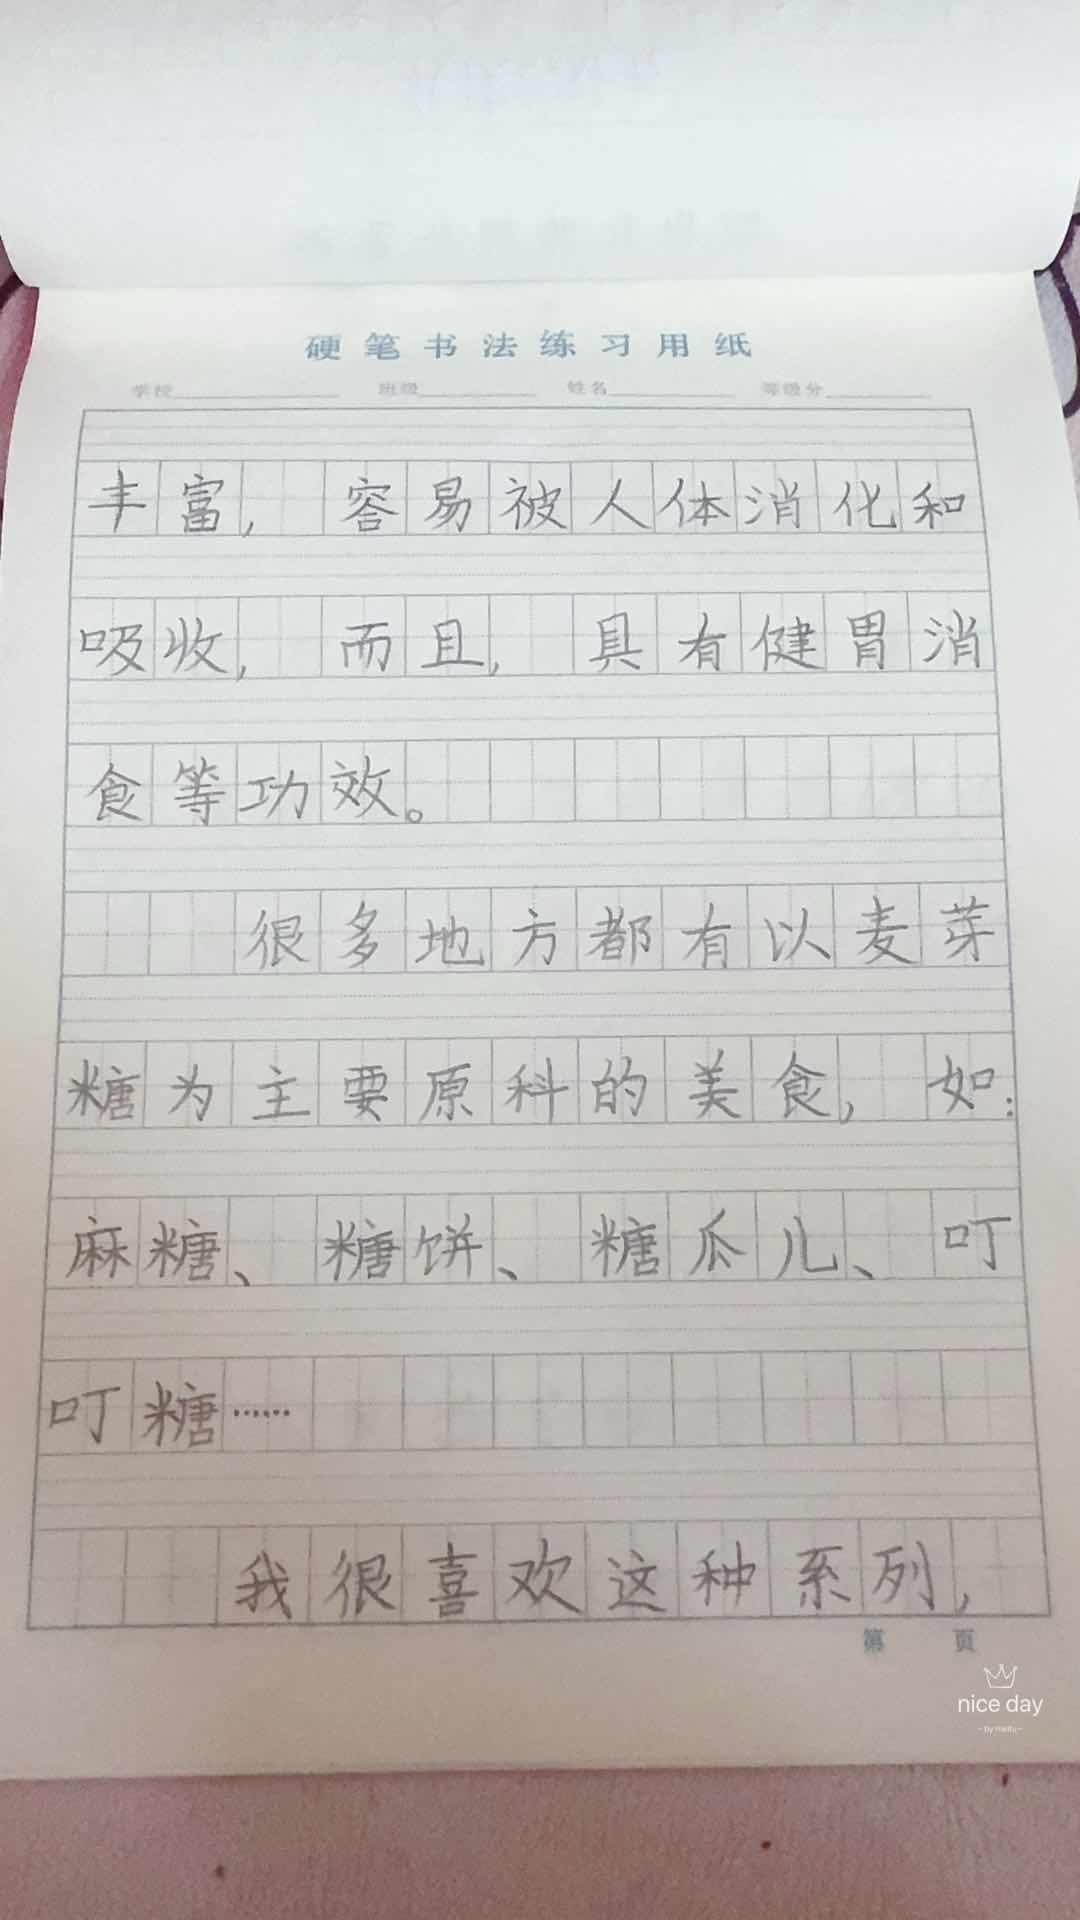 硬笔书法练习用纸
学校 班级 姓名 等级分
丰富，容易被人体消化和
吸收，而且，具有健胃消
食等功效。
很多地方都有以麦芽
糖为主要原科的美食，如：
麻糖、糖饼、糖瓜儿、叮
叮糖……
我很喜欢这种系列，
第 页
nice day